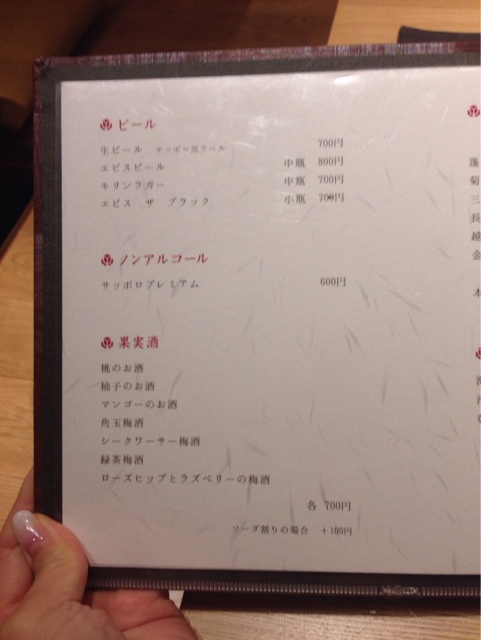 ビール
生ビール サッポロ黒ラベル 700円
エビスビール 中瓶 800円
キリンラガー 中瓶 700円
エビス ザ ブラック 小瓶 700円
ノンアルコール
サッポロプレミアム 600円
果実酒
桃のお酒
柚子のお酒
マンゴーのお酒
角玉梅酒
シークワーサー梅酒
緑茶梅酒
ローズヒップとラズベリーの梅酒
各 700円
ソーダ割りの場合 +100円
蓬
菊
三
長
越
金
本